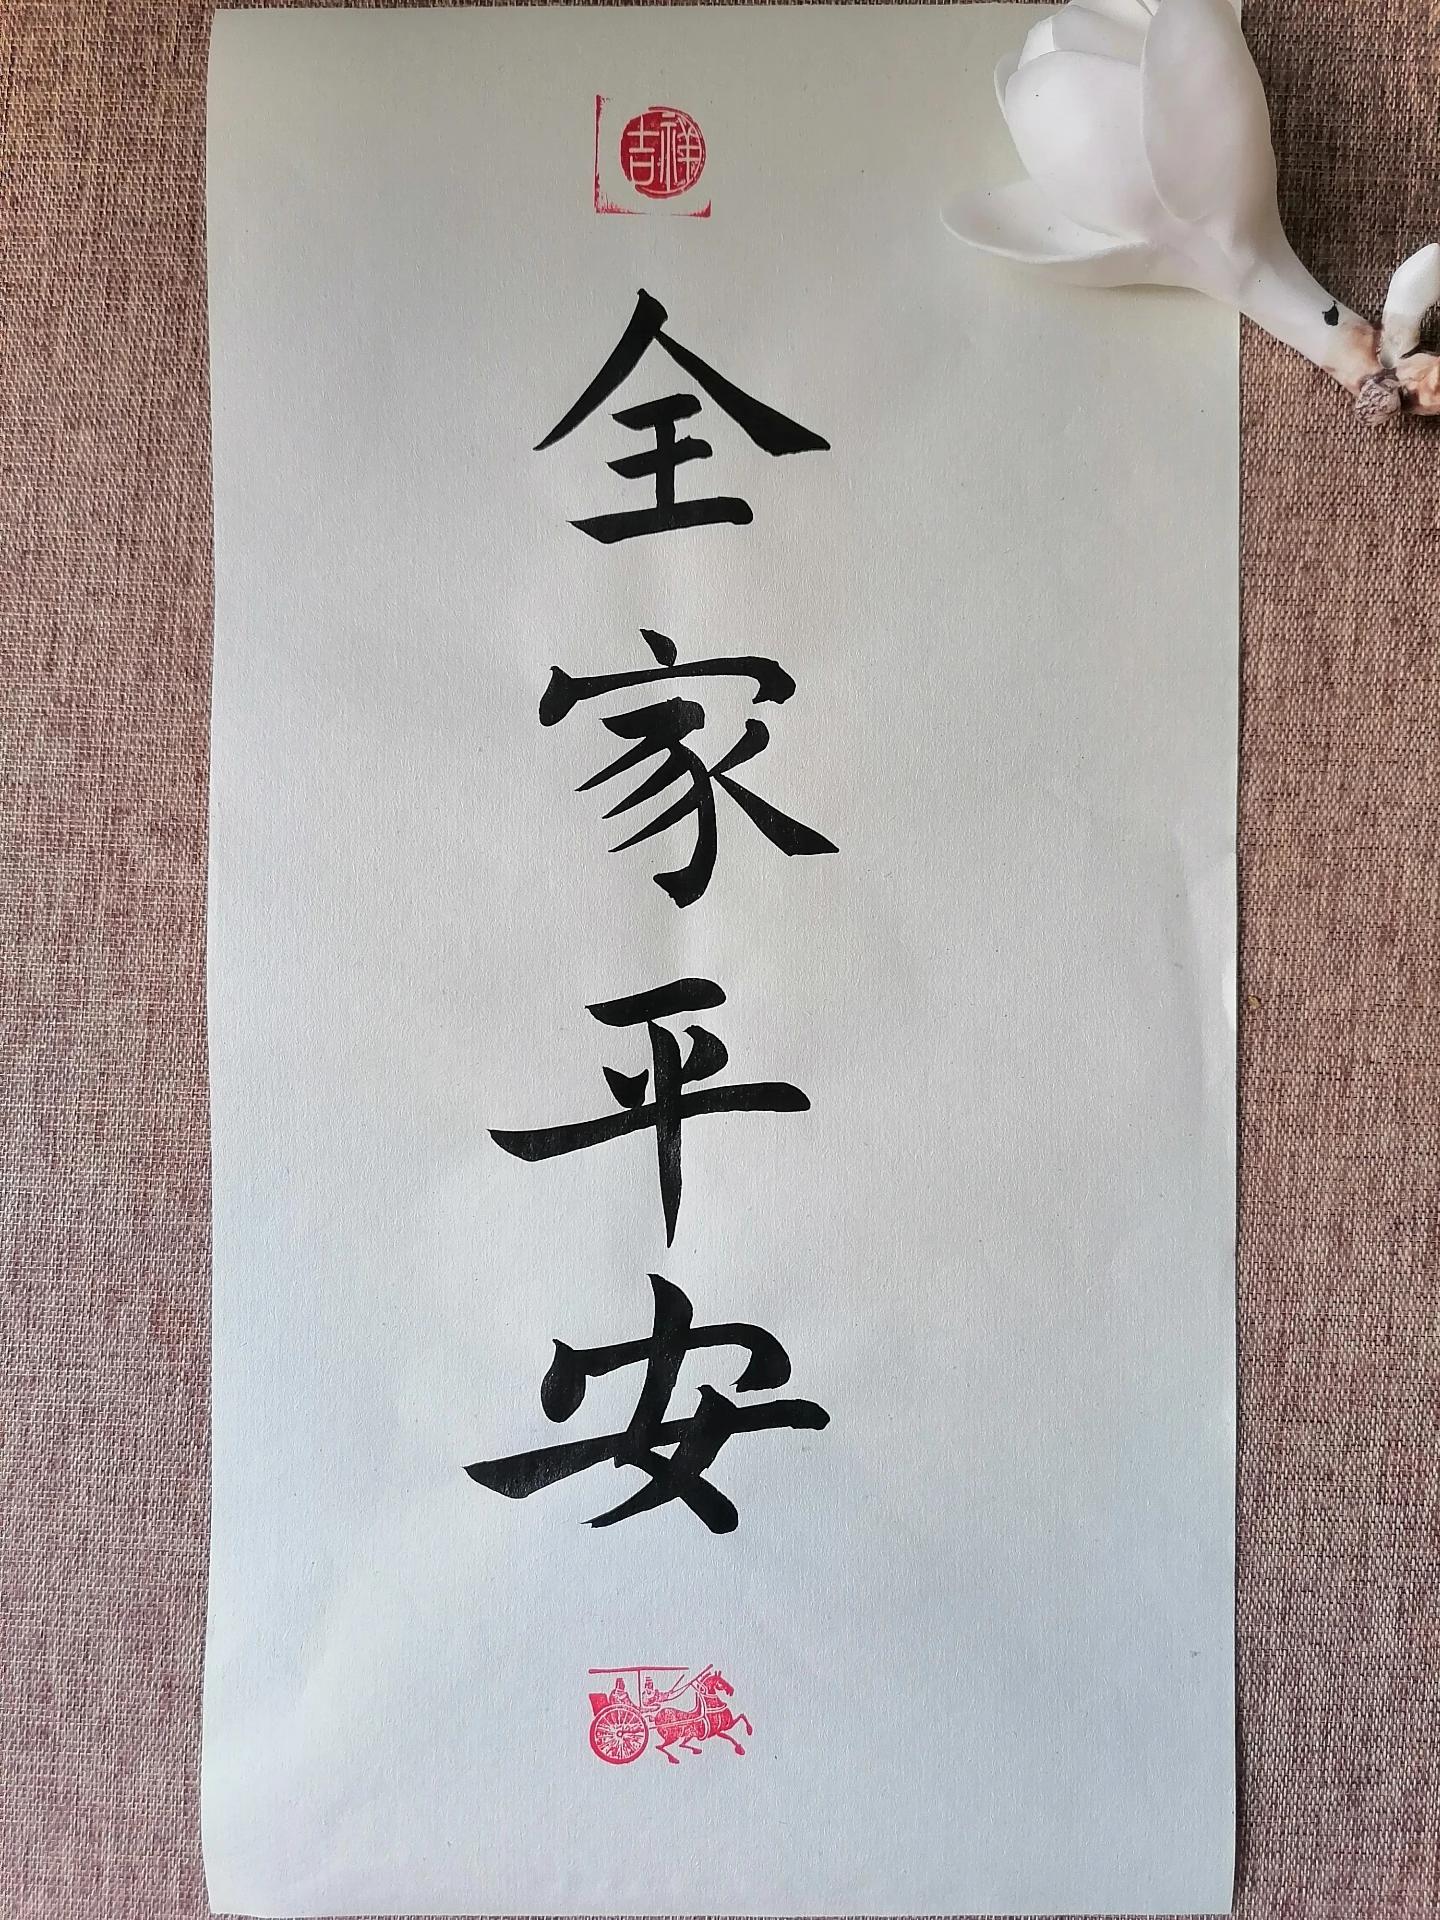 吉祥
全家平安